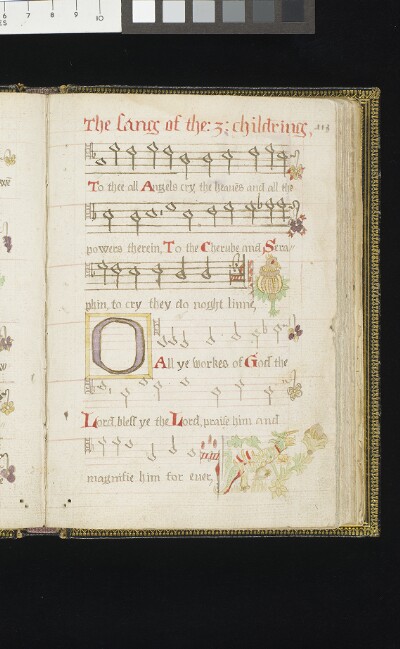 6 7 8 9 10
The sang of the: 3: childrings, 113
To thee all Angels cry, the heavēs and all the
powers therein, To the Cherube and Sera/
phin, to cry they do noght linne,
O
All ye workes of God the
Lord bless ye the Lord, praise him and
magnifie him for ever,